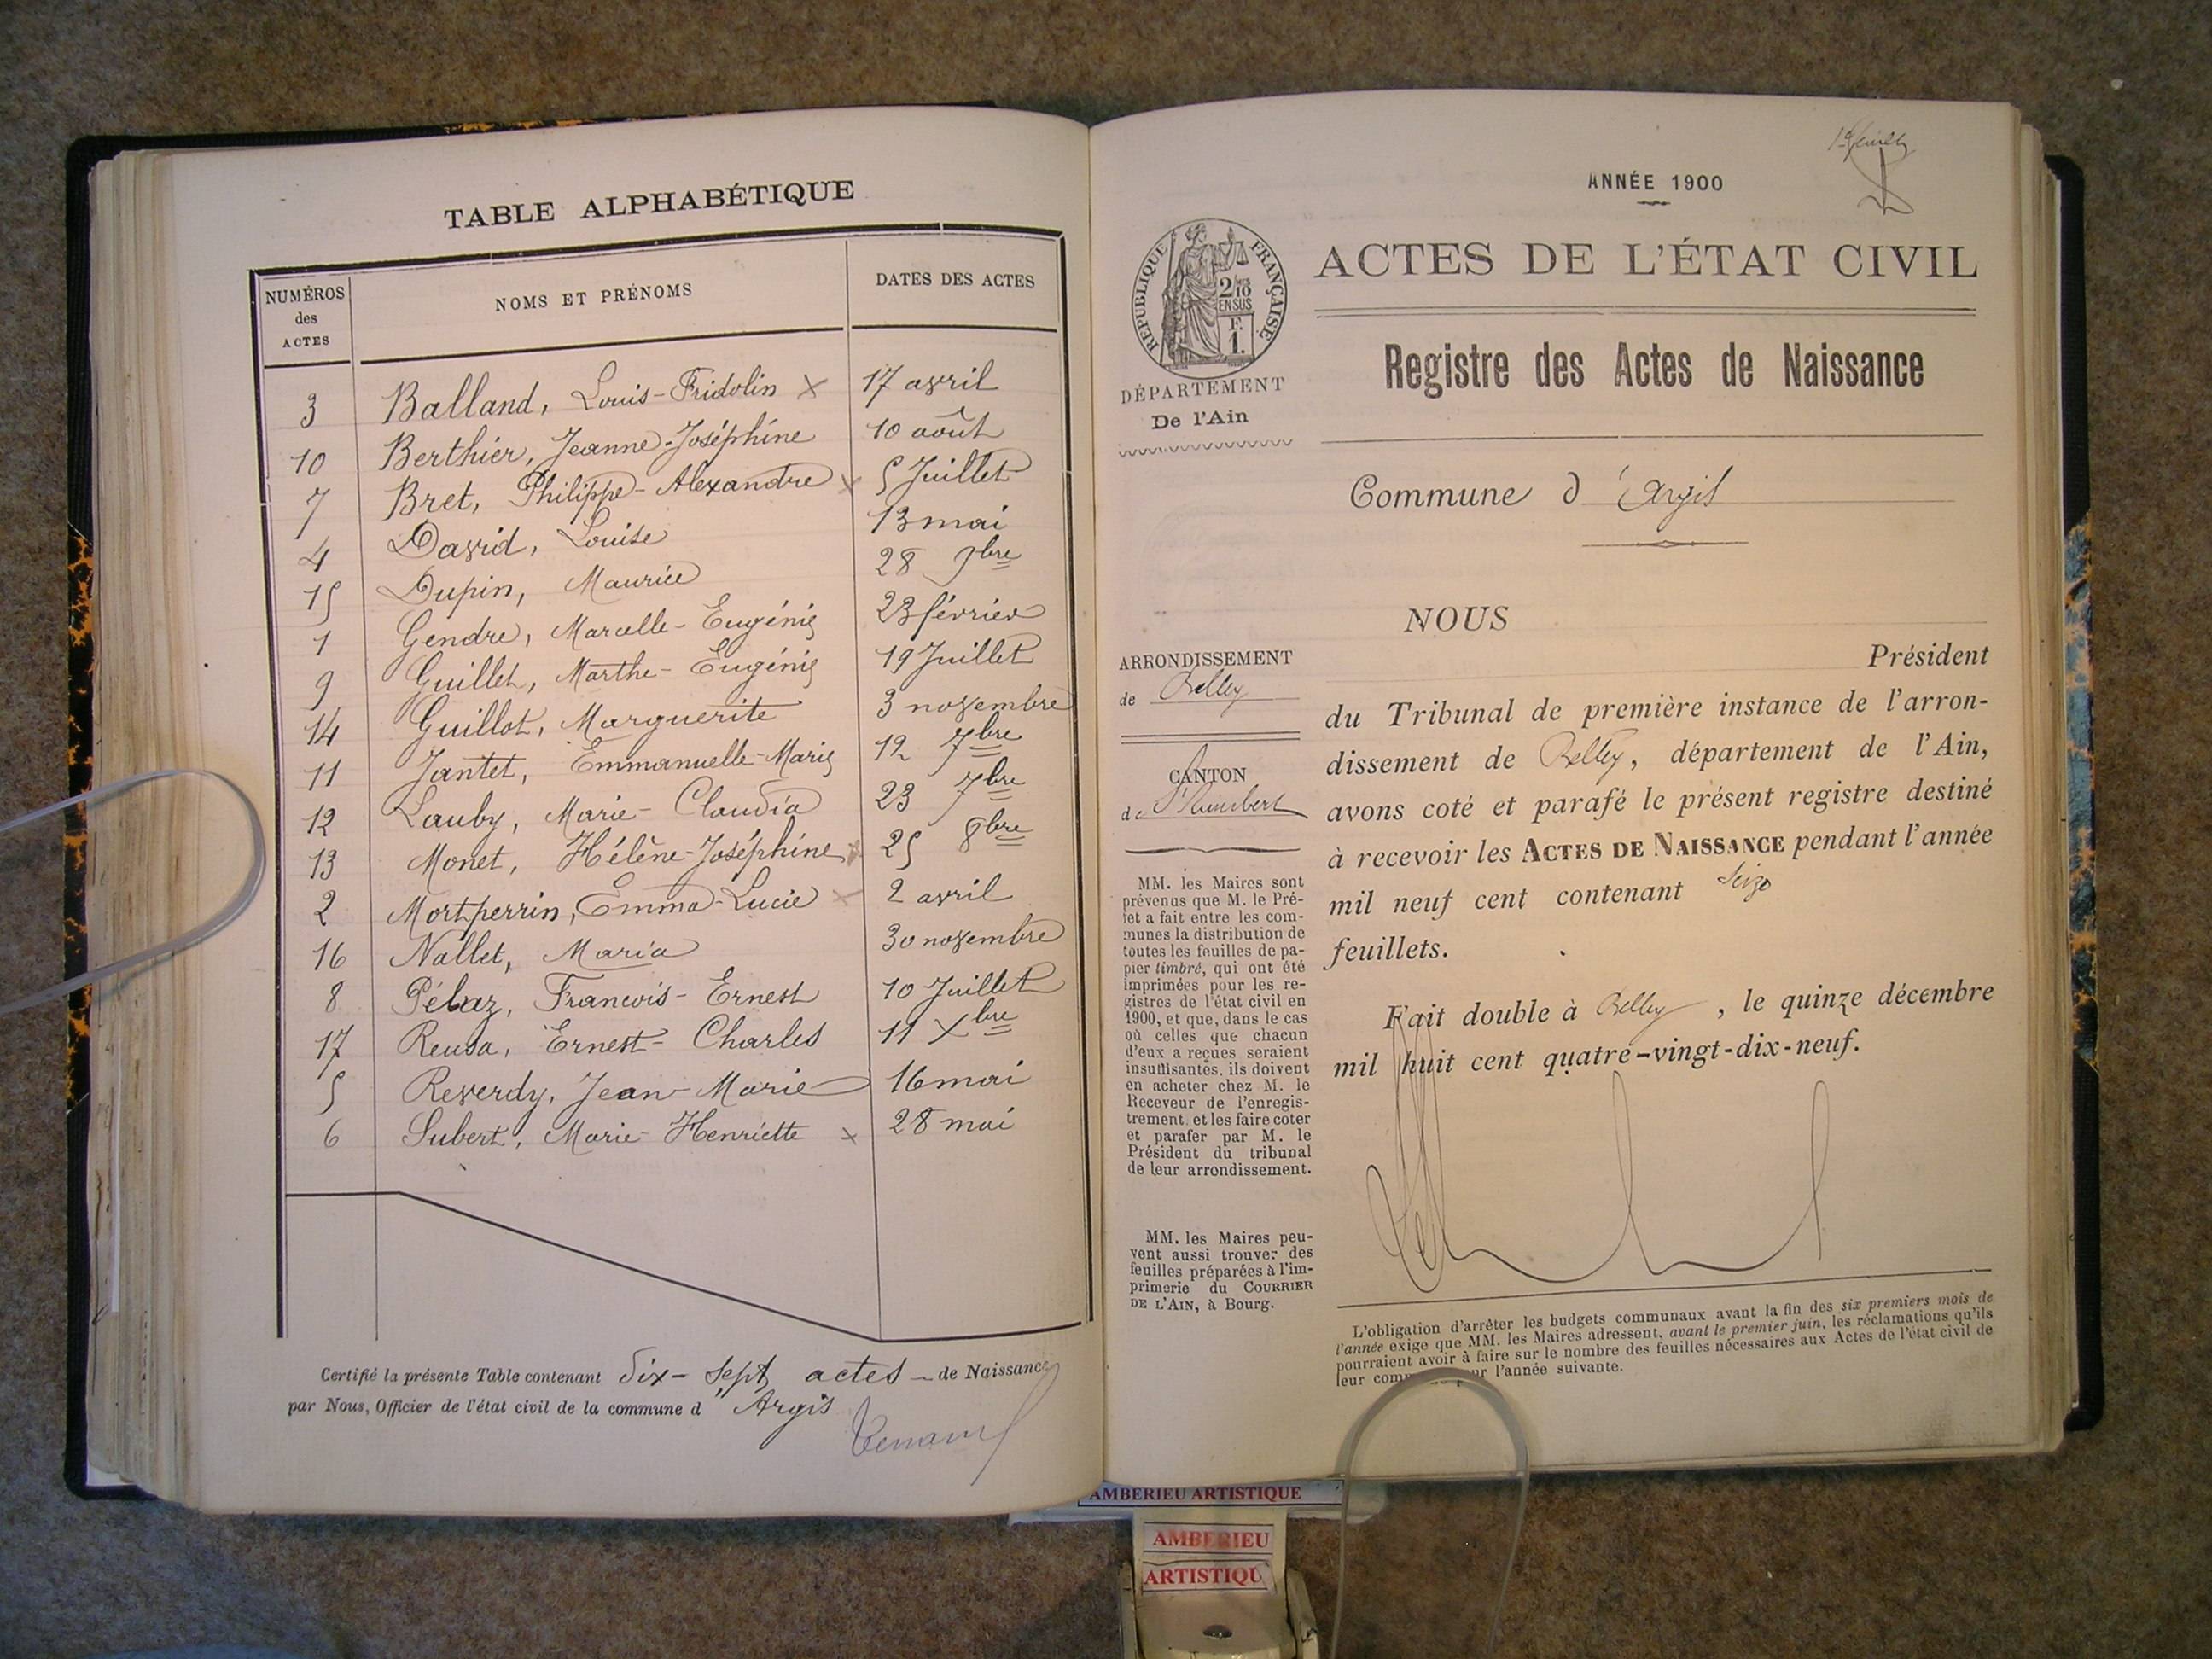 TABLE ALPHABÉTIQUE
NUMÉROS des ACTES
NOMS ET PRÉNOMS
DATES DES ACTES
3 Balland, Louis-Fridolin x 17 avril
10 Berthier, Jeanne-Joséphine 10 août
7 Bret, Philippe-Alexandre x 5 Juillet
4 David, Louise 13 mai
15 Dupin, Maurice 28 9bre
1 Gendre, Marcelle-Eugénie 23 février
9 Guillet, Marthe-Eugénie 19 Juillet
14 Guillot, Marguerite 3 novembre
11 Jantet, Emmanuelle-Marie 12 7bre
12 Lauby, Marie-Claudia 23 7bre
13 Monet, Hélène-Joséphine x 25 8bre
2 Mortperrin, Emma-Lucie x 2 avril
16 Nallet, Maria 30 novembre
8 Pélaz, François-Ernest 10 Juillet
17 Reusa, Ernest-Charles 11 Xbre
5 Reverdy, Jean-Marie 16 mai
6 Subert, Marie-Henriette x 28 mai
Certifié la présente Table contenant dix-sept actes - de Naissance
par Nous, Officier de l'état civil de la commune d'Argis
ANNÉE 1900
RÉPUBLIQUE FRANÇAISE
2/10
EN SUS
F.
1.
ACTES DE L'ÉTAT CIVIL
Registre des Actes de Naissance
DÉPARTEMENT
De l'Ain
Commune d'Argis
NOUS
Président
ARRONDISSEMENT
de Belley
CANTON
de St Rambert
du Tribunal de première instance de l'arron-
dissement de Belley, département de l'Ain,
avons coté et parafé le présent registre destiné
à recevoir les ACTES DE NAISSANCE pendant l'année
mil neuf cent contenant seize
feuillets.
Fait double à Belley, le quinze décembre
mil huit cent quatre-vingt-dix-neuf.
MM. les Maires sont
prévenus que M. le Pré-
fet a fait entre les com-
munes la distribution de
toutes les feuilles de pa-
pier timbré, qui ont été
imprimées pour les re-
gistres de l'état civil en
1900, et que, dans le cas
où celles que chacun
d'eux a reçues seraient
insuffisantes, ils doivent
en acheter chez M. le
Receveur de l'enregis-
trement, et les faire coter
et parafer par M. le
Président du tribunal
de leur arrondissement.
MM. les Maires peu-
vent aussi trouver des
feuilles préparées à l'im-
primerie du COURRIER
DE L'AIN, à Bourg.
L'obligation d'arrêter les budgets communaux avant la fin des six premiers mois de
l'année exige que MM. les Maires adressent, avant le premier juin, les réclamations qu'ils
pourraient avoir à faire sur le nombre des feuilles nécessaires aux Actes de l'état civil de
leur pour l'année suivante.
AMBERIEU ARTISTIQUE
AMBERIEU
ARTISTIQU